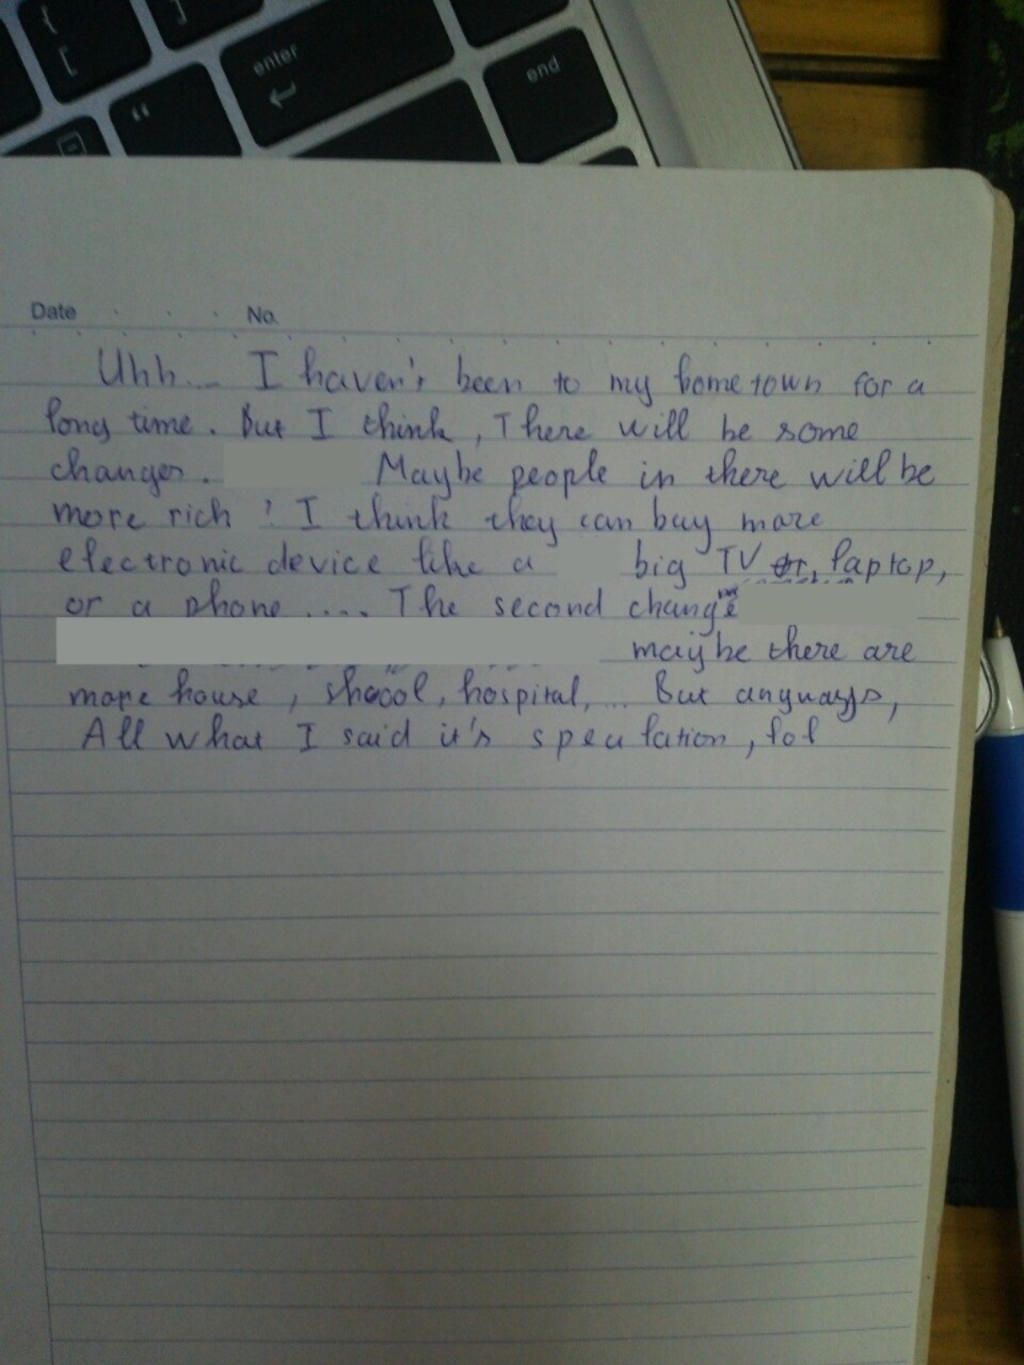 {
[
]
enter
end
"
Date No.
Uhh... I haven't been to my hometown for a
long time. But I think, There will be some
changes. Maybe people in there will be
more rich ? I think they can buy more
electronic device like a big TV or, laptop,
or a phone .... The second change
maybe there are
more house, shocol, hospital, ... But anyways,
All what I said it's speulation, lol